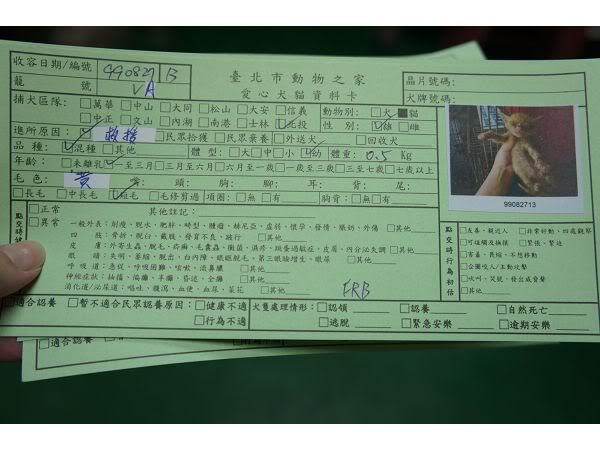 收容日期/編號 990827 B
臺北市動物之家
晶片號碼:
籠 號 VA
愛心犬貓資料卡
犬牌號碼:
捕犬區隊: □萬華 □中山 □大同 □松山 □大安 □信義 動物別: □犬 ■貓
□中正 □文山 □內湖 □南港 □士林 □北投 性 別: □雄 □雌
進所原因: □ 救援 □民眾拾獲 □民眾棄養 □外送犬 □回收犬
品 種: □混種 □其他 體 型: □大 □中 □小 □幼 體重: 0.5 Kg
年齡: □未離乳 □一至三月 □三月至六月 □六月至一歲 □一歲至三歲 □三至七歲 □七歲以上
毛 色: 黃 嘴: 頭: 胸: 腳: 耳: 背: 尾:
□長毛 □中長毛 □短毛 □毛修剪過 項圈: □無 □有 胸背: □無 □有
99082713
□正常 其他註記:
□異常
一般外表: 削瘦、脫水、肥胖、畸型、腫瘤、赫尼亞、虛弱、懷孕、發情、脹奶、外傷 □其他
四 肢: 骨折、脫臼、截肢、發育不良、跛行 □其他
皮 膚: 外寄生蟲、脫毛、疥癬、毛囊蟲、黴菌、濕疹、跳蚤過敏症、皮屑、內分泌失調 □其他
呼 吸 道: 急促、呼吸困難、咳嗽、流鼻膿 □其他
神經症狀: 抽搐、偏癱、半癱、昏迷、全癱 □其他
FRB
點交時行為初估
□友善、親近人
□緊張、緊迫
□害羞、畏縮、不想移動
□企圖咬人/主動攻擊
□其他
□適合認養 □暫不適合民眾認養原因: □健康不適 犬隻處理情形: □認領 □認養 □自然死亡
□行為不適 □逃脫 □緊急安樂 □逾期安樂
□適合認養